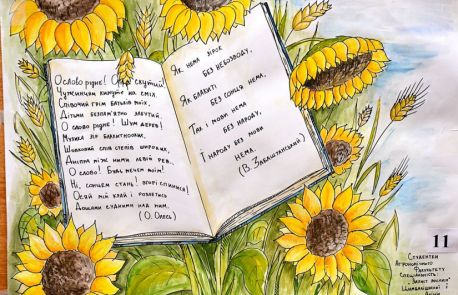 О слово рідне! Орле скутий!
Чужинцям кинуте на сміх.
Співочий грім батьків моїх,
Дітьми безпам'ятно забутий.
О слово рідне! Шум дерев!
Музика зір блакитнооких,
Шовковий спів степів широких,
Дніпра між ними левій рев..
О слово! Будь мечем моїм!
Ні, сонцем стань! вгорі спинися!
Осяй мій край і розлетися
Дощами судними над ним.
(О. Олесь)
Як нема зірок
без небозводу,
Як блакиті
без сонця нема,
Так і мови нема
без народу,
І народу без мови
нема.
(В. Забаштанський)
11
Студентки
Агрономічного
факультету
спеціальність
"Захист рослин"